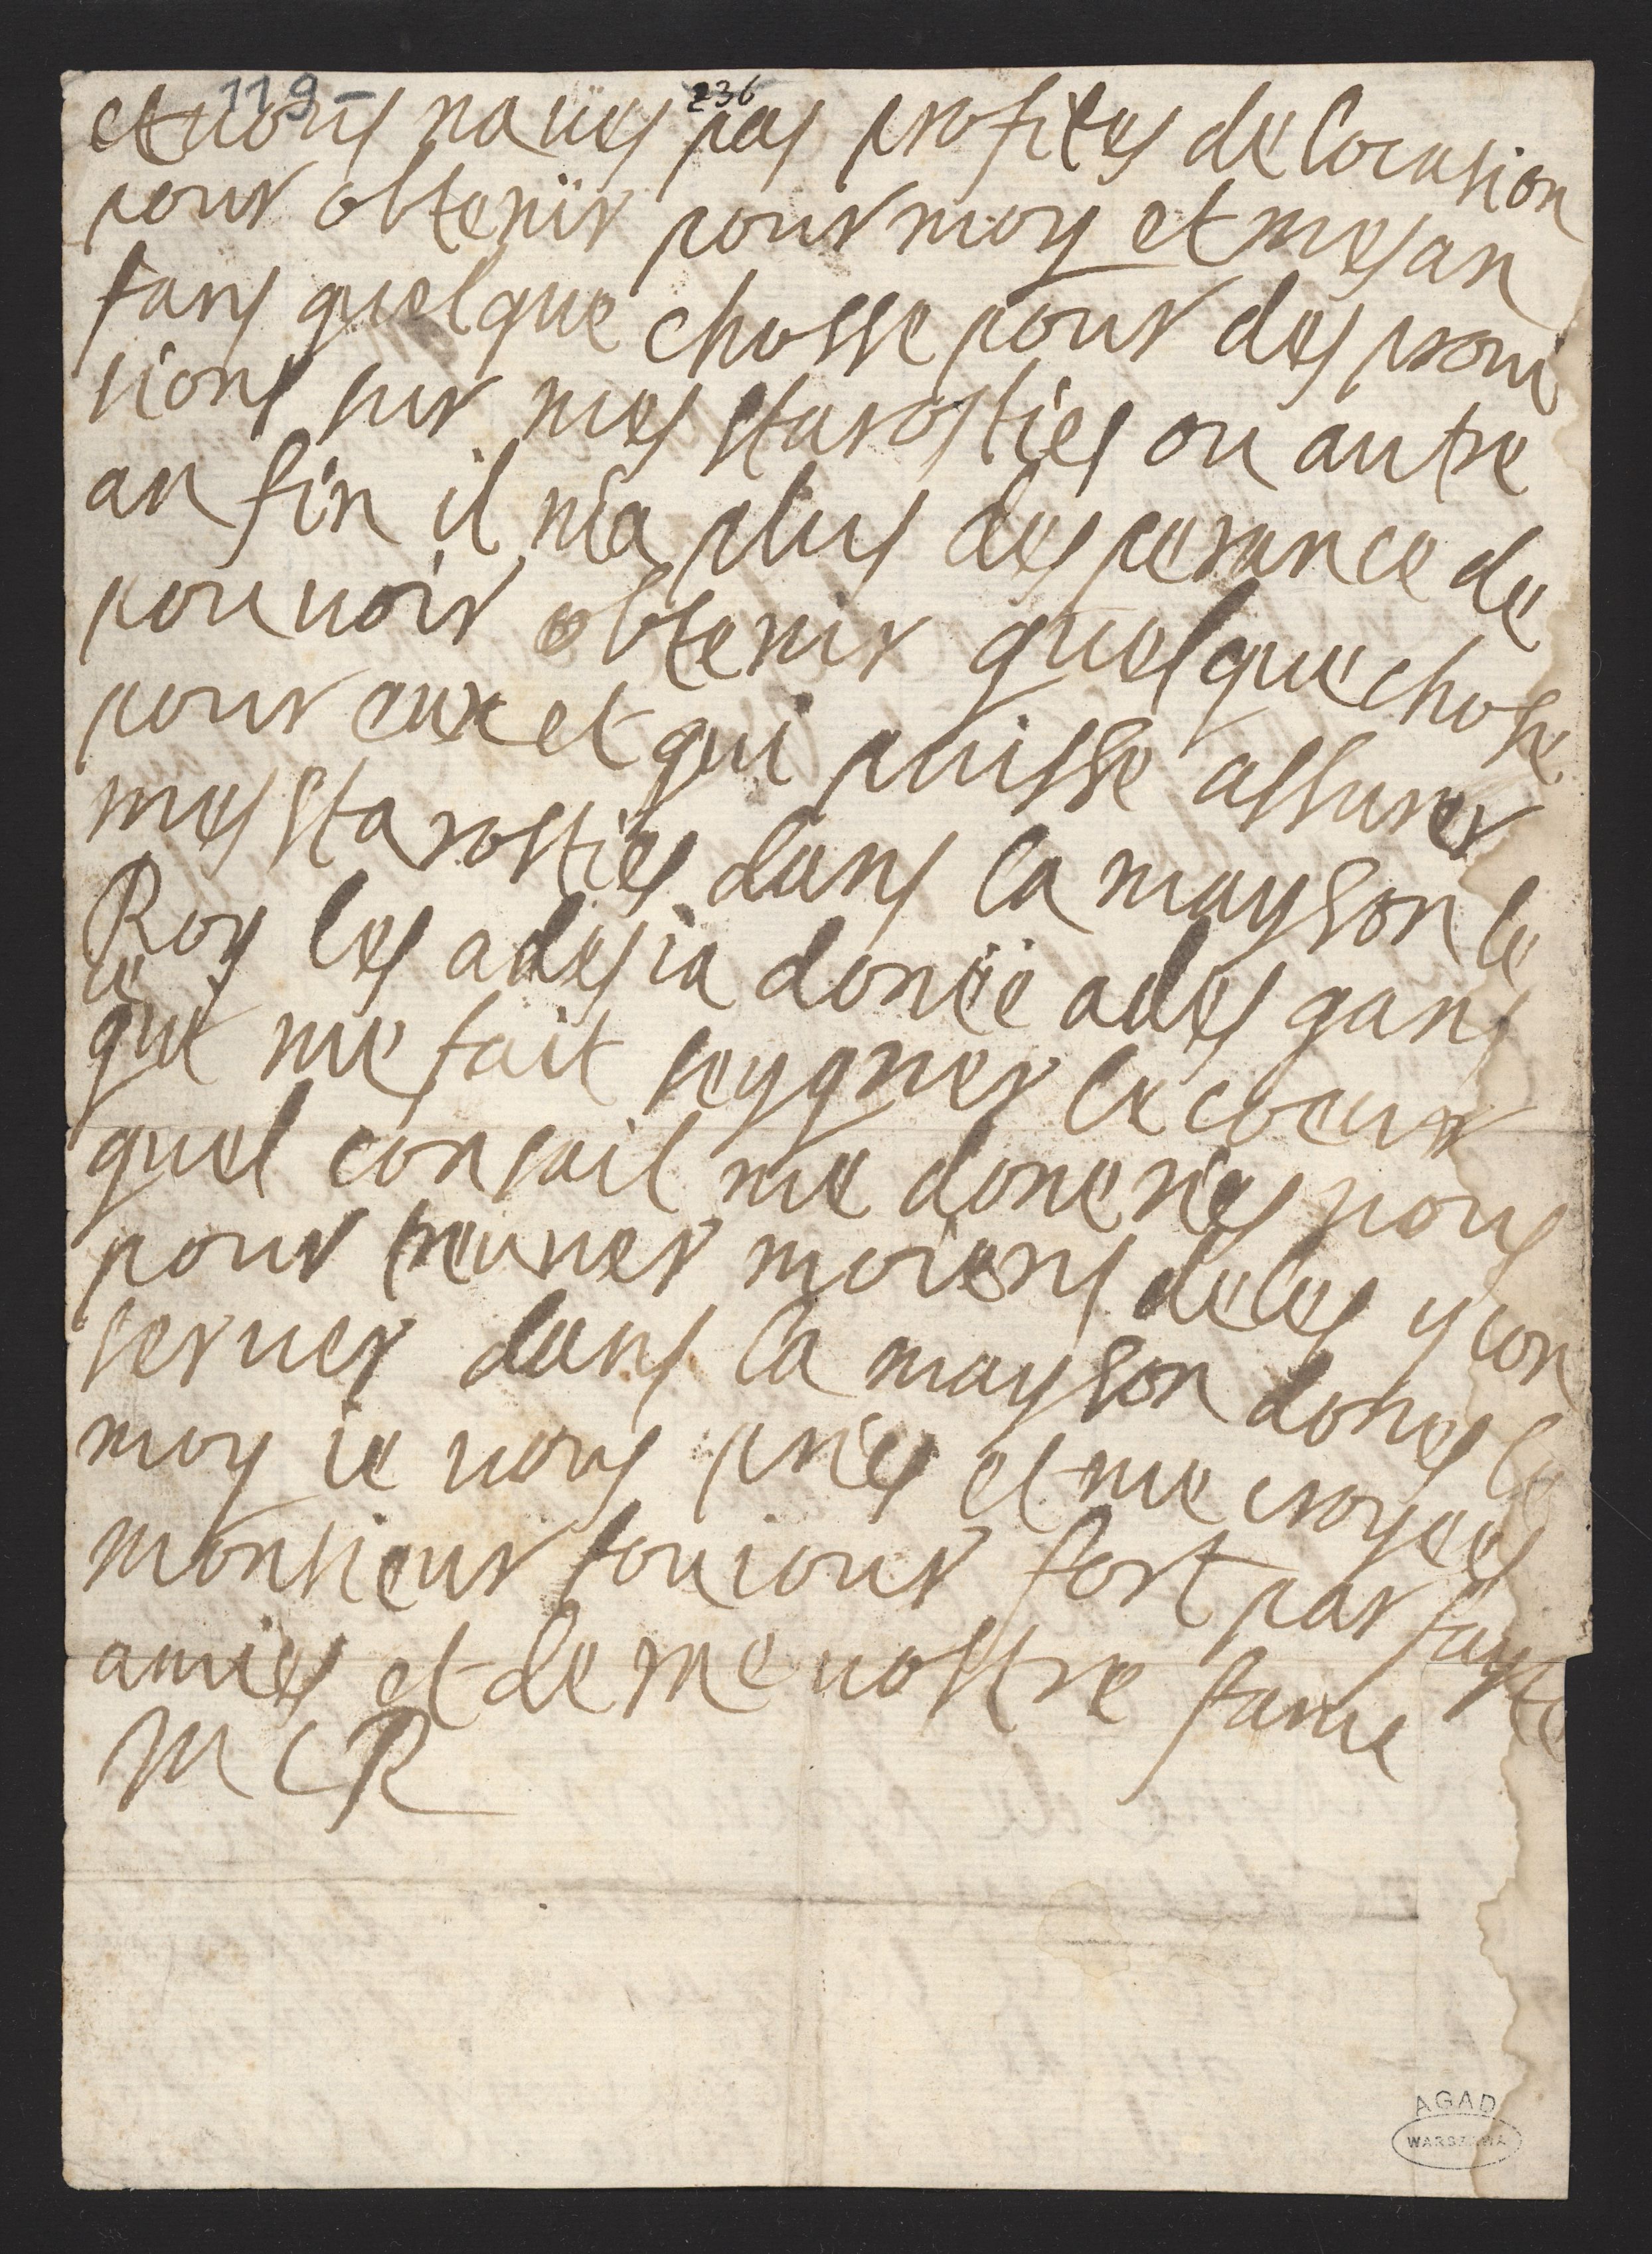 119-
236
et uous naues pas profites de locasion
pour obtenir pour moy et mes an
fans quelque chosse pour des proui
sions sur mes starosties ou autre
an fin il nia plus desperance de
pouuoir obtenir quelque chose
pour eux et qui puisse assurer
mes starosties dans la mayson le
Roy les a desia donëe a des gans
ce
que me fait seygner le coeur
quel consail me doneries vous
pour treuuer moiens de les y con
seruer dans la mayson dones le
moy ie vous pries et me croyees
monsieur touiour fort par fayte
amies et de me vostre fame
M C R
AGAD
WARSZAWA